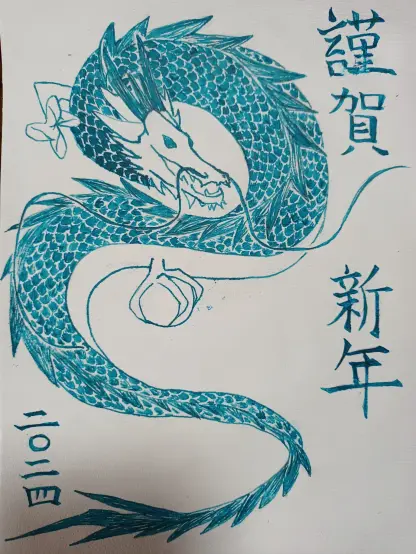 謹賀新年
二〇二四